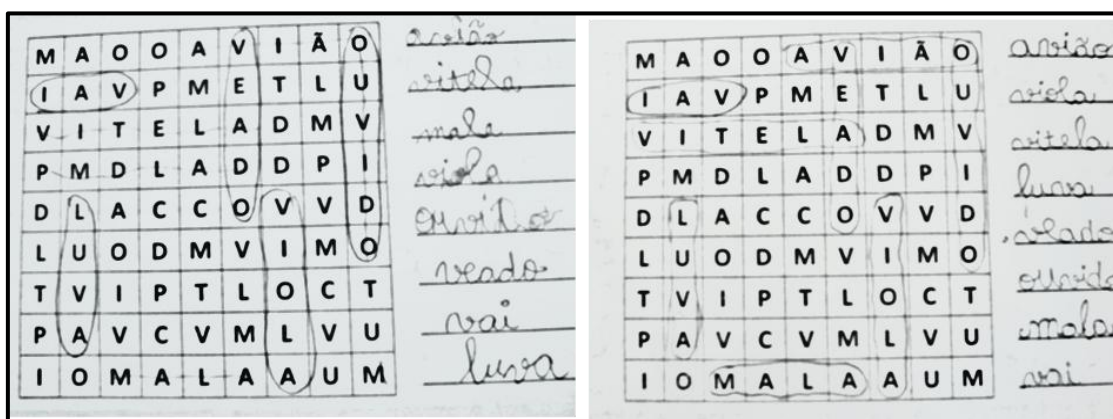 M A O O A V I Ã O
I A V P M E T L U
V I T E L A D M V
P M D L A D D P I
D L A C C O V V D
L U O D M V I M O
T V I P T L O C T
P A V C V M L V U
I O M A L A A U M
avião
vitela
mala
viola
ouvido
veado
vai
luva
M A O O A V I Ã O
I A V P M E T L U
V I T E L A D M V
P M D L A D D P I
D L A C C O V V D
L U O D M V I M O
T V I P T L O C T
P A V C V M L V U
I O M A L A A U M
avião
viola
vitela
luva
veado
ouvido
mala
vai